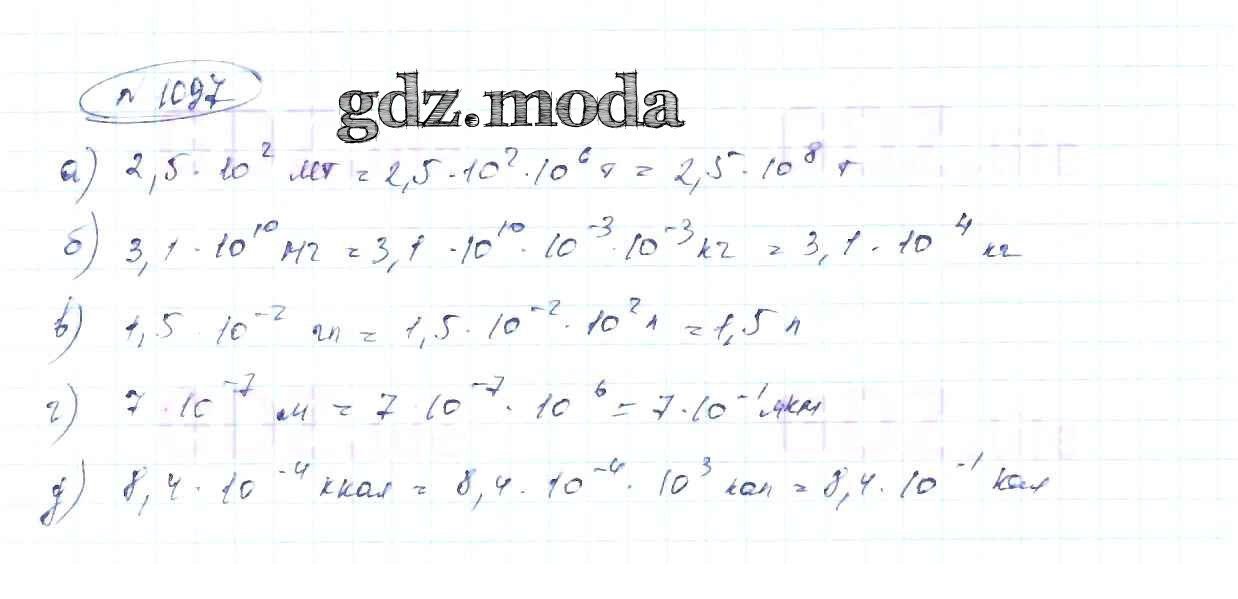 n 1097
gdz.moda
а) 2,5 · 10² Мт = 2,5 · 10² · 10⁶ т = 2,5 · 10⁸ т
б) 3,1 · 10¹⁰ мг = 3,1 · 10¹⁰ · 10⁻³ · 10⁻³ кг = 3,1 · 10⁴ кг
в) 1,5 · 10⁻² гл = 1,5 · 10⁻² · 10² л = 1,5 л
г) 7 · 10⁻⁷ м = 7 · 10⁻⁷ · 10⁶ = 7 · 10⁻¹ мкм
д) 8,4 · 10⁻⁴ ккал = 8,4 · 10⁻⁴ · 10³ кал = 8,4 · 10⁻¹ кал